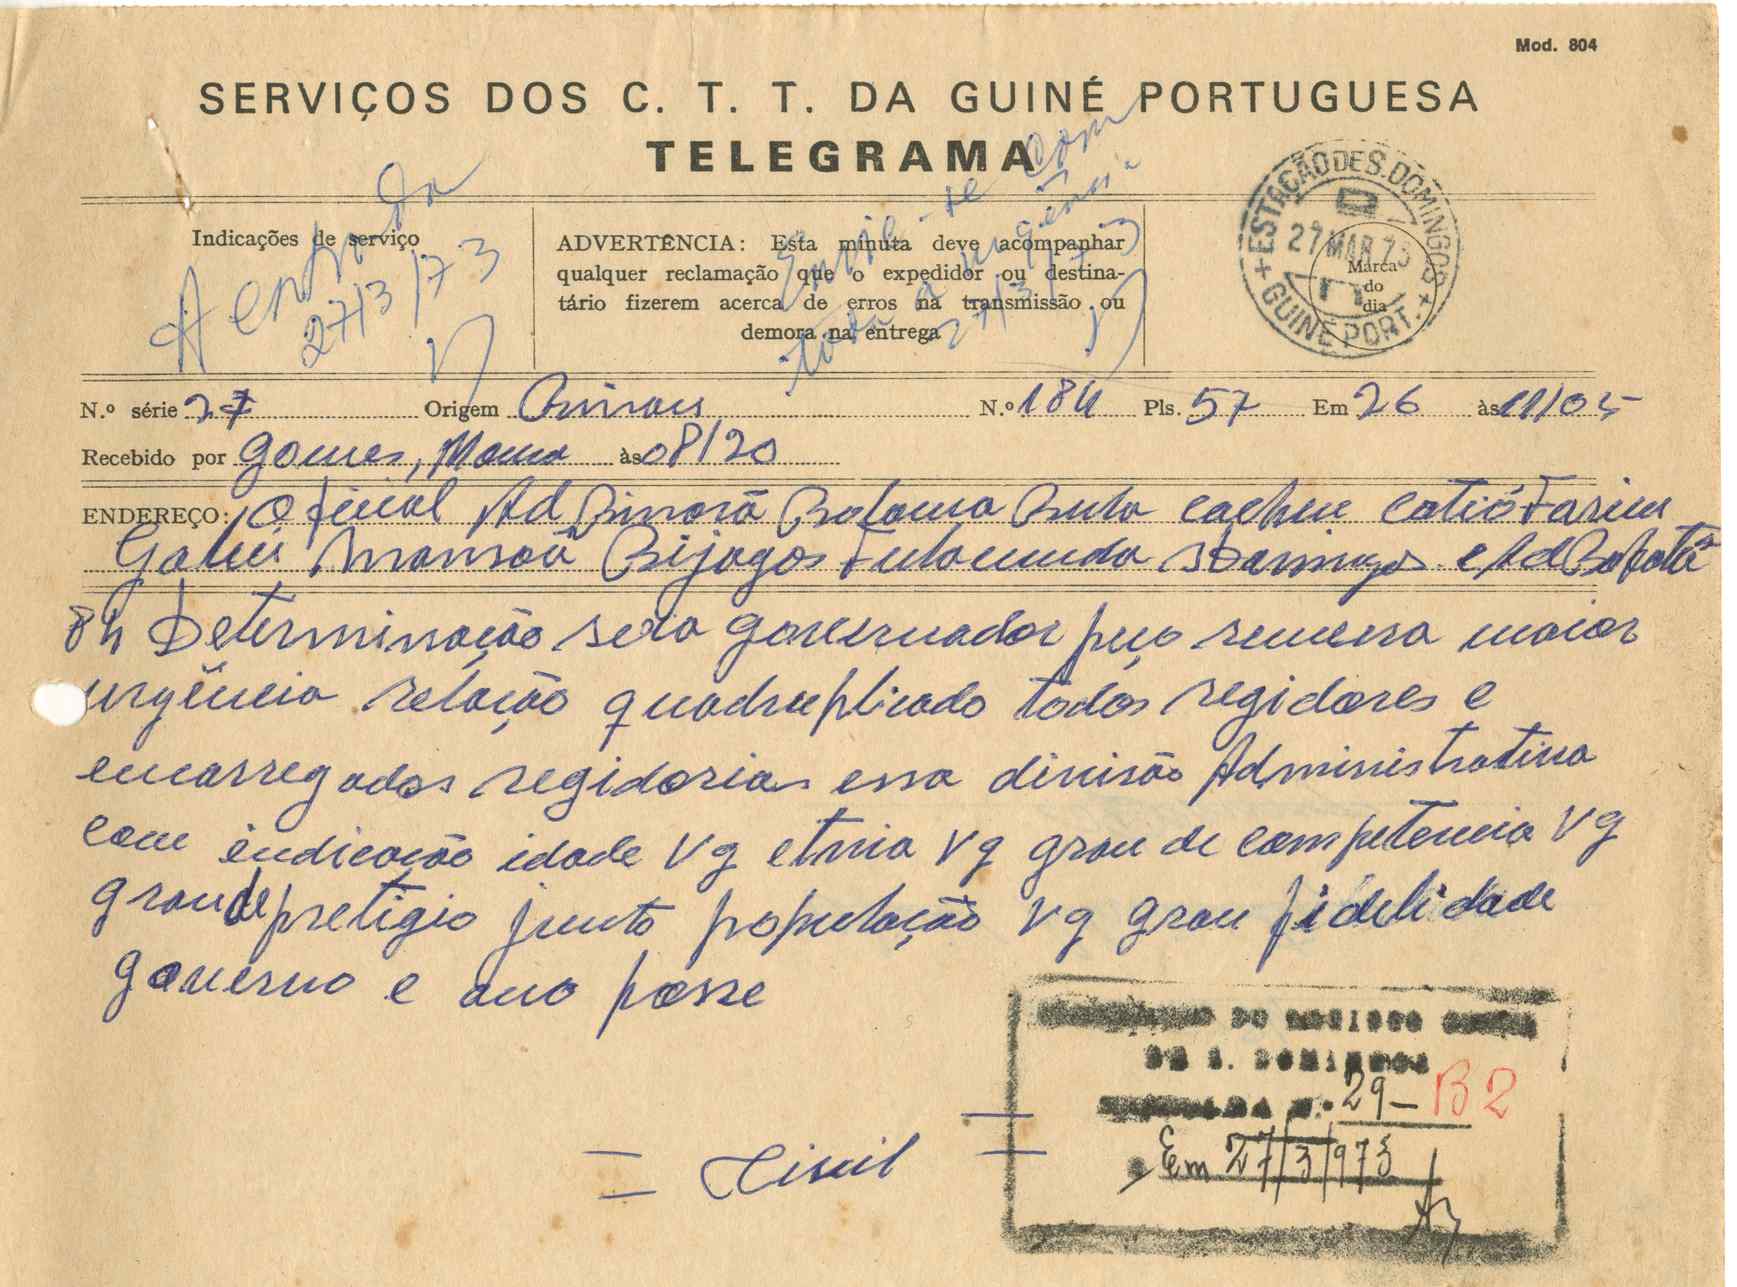 Mod. 804
SERVIÇOS DOS C. T. T. DA GUINÉ PORTUGUESA
TELEGRAMA
Indicações de serviço
A entrada
27/3/73
ADVERTÊNCIA: Esta minuta deve acompanhar
qualquer reclamação que o expedidor ou destina-
tário fizerem acerca de erros na transmissão ou
demora na entrega
Envie-se com
toda a urgência
27/3/73
ESTAÇÃO DE S. DOMINGOS
27 MAR 73
GUINÉ PORT.
Marca
do
dia
N.º série 27 Origem Bissau N.º 184 Pls. 57 Em 26 às 11/05
Recebido por Gomes, às 08/20
ENDEREÇO: Oficial Ad Bissorã Bolama Bula Cacheu Catió Farim
Gabú Mansoa Bijagos Fulacunda SDomingos e Ad Bafatá
84 Determinação sexa governador peço remessa maior
urgência relação quadruplicado todos regidores e
encarregados regidorias essa divisão Administrativa
com indicação idade Vg etnia Vg grau de competencia Vg
grau de pretigio junto população Vg grau fidelidade
governo e ano posse
= Civil =
DO REGISTO
DE S. DOMINGOS
ENTRADA N.º 29 - B2
Em 27/3/973